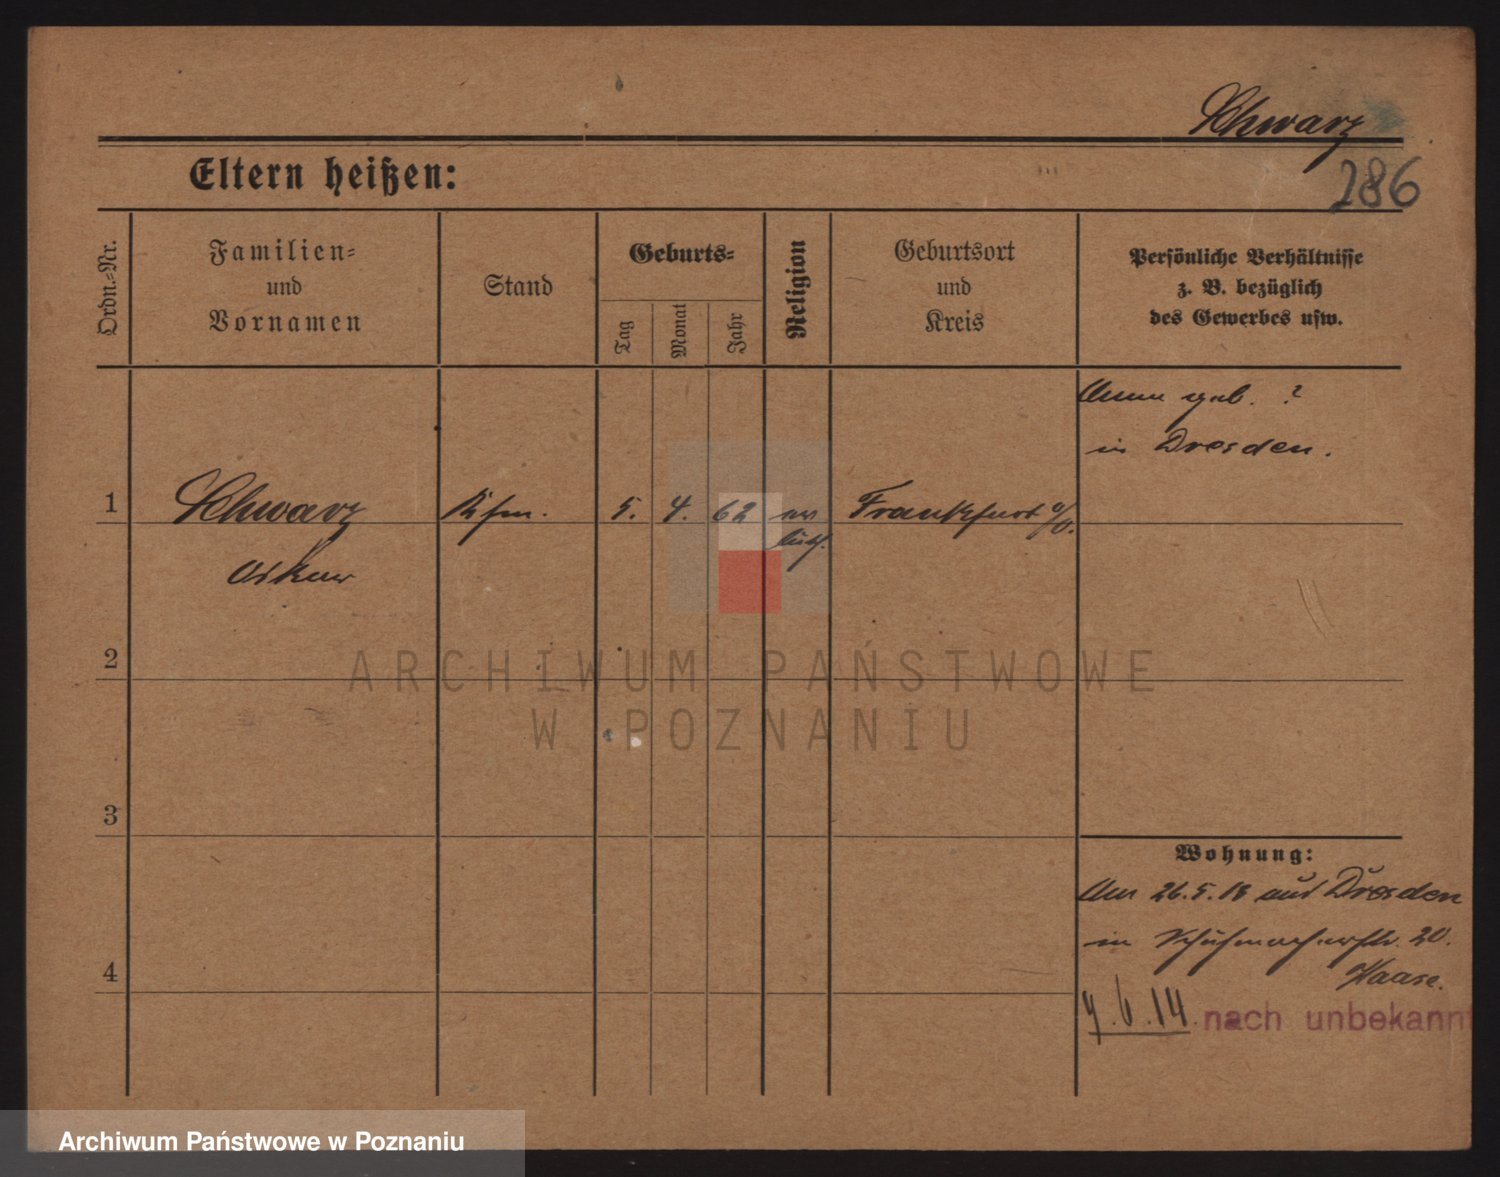 Schwarz
286
Eltern heißen:
Ordn.-Nr.
Familien-
und
Vornamen
Stand
Geburts-
Tag
Monat
Jahr
Religion
Geburtsort
und
Kreis
Persönliche Verhältnisse
z. B. bezüglich
des Gewerbes usw.
geb. ?
in Dresden.
1
Schwarz
Kfm.
5.
4.
62
Frankfurt a/O.
Oskar
2
ARCHIWUM PAŃSTWOWE
W POZNANIU
3
Wohnung:
26.5.13 aus Dresden
in Schuhmacherstr. 20.
Haase.
4
9.6.14 nach unbekannt
Archiwum Państwowe w Poznaniu